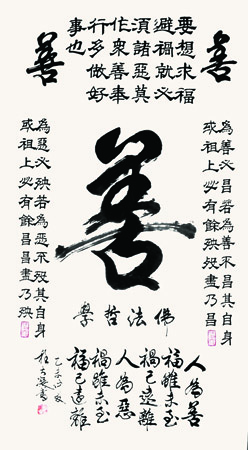 善
善
要想求福
避禍就必
須諸惡莫
作衆善奉
行多做好
事也
為善必昌若為善不昌其自身
或祖上必有餘殃殃盡乃昌
善
為惡必殃若為惡不殃其自身
或祖上必有餘昌昌盡乃殃
佛法哲學
人為善
福雖未至
禍已遠離
人為惡
禍雖未至
福已遠離